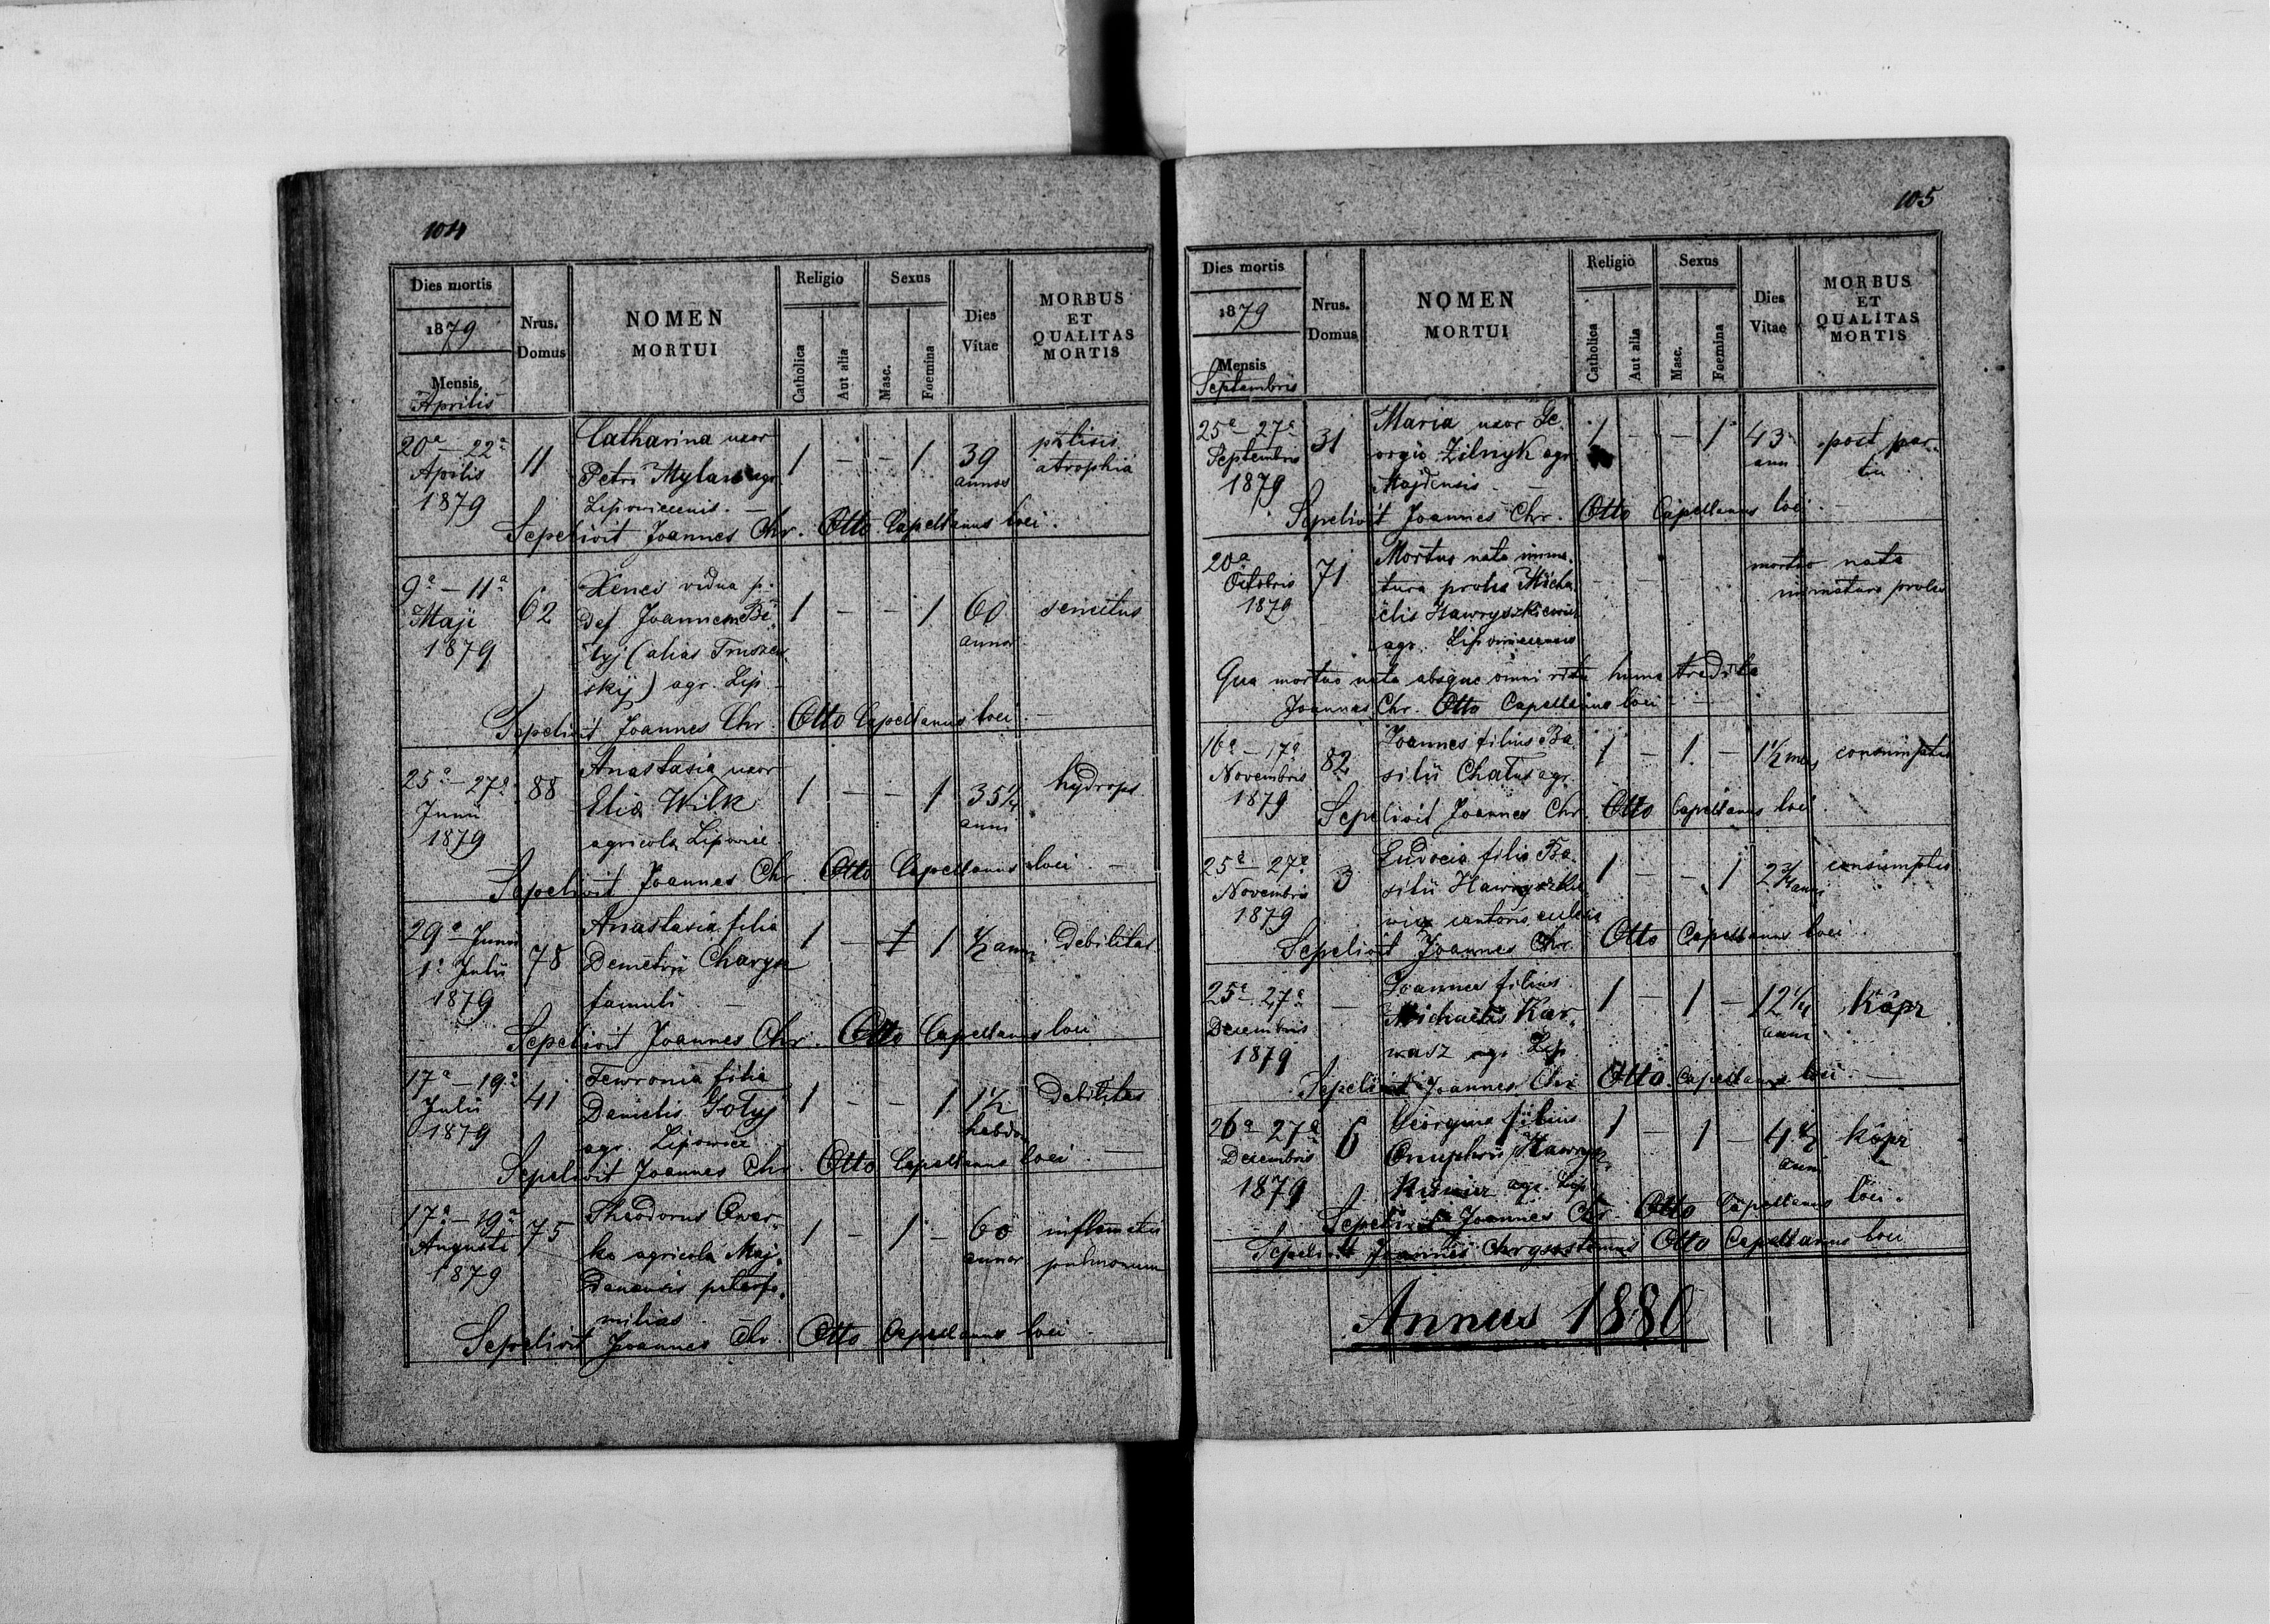 104
Dies mortis
1879
Mensis
Aprilis
Nrus. Domus
NOMEN
MORTUI
Religio
Catholica
Aut alia
Sexus
Masc.
Foemina
Dies
Vitae
MORBUS
ET
QUALITAS
MORTIS
20a – 22a
Aprilis
1879
11
Catharina uxor
Petri agr.
1 – – 1
39
annos
phtisis
atrophia
Sepelivit Joannes Chr. Otto Capellanus loci.
9a – 11a
Maji
1879
62
vidua p.
def Joannem Bi
lyj (alias
skij) agr. Lip.
1 – – 1
60
annor
senectus
Sepelivit Joannes Chr. Otto Capellanus loci –
25a – 27a
Junii
1879
88
Anastasia uxor
Eliæ Wilk
agricola Lipowice
1 – – 1
35 1/4
anni
hydrops
Sepelivit Joannes Chr. Otto Capellanus loci –
29a – Junii
1a Julii
1879
78
Anastasia filia
Demetrii
famuli –
1 – 1 1
1/2 anni
Debilitas
Sepelivit Joannes Chr. Otto Capellanus loci
17a – 19a
Julii
1879
41
Fewronia filia
Danielis Gotyj
agr. Lipowice
1 – – 1
1 1/2
hebdo
Debilitas
Sepelivit Joannes Chr. Otto Capellanus loci –
17a – 19a
Augusti
1879
75
Theodorus Ower-
ko agricola Maj-
danensis paterfa-
milias
1 – 1 –
60
annor
inflamatio
pulmonum
Sepelivit Joannes Chr. Otto Capellanus loci –
105
Dies mortis
1879
Mensis
Septembris
Nrus.
Domus
NOMEN
MORTUI
Religio
Catholica
Aut alia
Sexus
Masc.
Foemina
Dies
Vitae
MORBUS
ET
QUALITAS
MORTIS
25a – 27a
Septembris
1879
31
Maria uxor Ge-
orgii Zilnyk agr.
Majdensis –
1 – – 1
43
ann
post par-
tu
Sepelivit Joannes Chr. Otto Capellanus loci –
20a
Octobris
1879
71
Mortuo nata imma-
tura proles Micha
elis Hawryszkiewicz
agr.
– – –
mortuo nata
immatura proles
Qua mortuo nata absque omni ritu humo tradita
Joannes Chr. Otto Capellanus loci –
16a – 17a
Novembris
1879
82
Joannes filius Ba-
silii agr.
1 – 1 –
1 1/2 mens
consumptio
Sepelivit Joannes Chr. Otto Capellanus loci.
25a – 27a
Novembris
1879
3
Eudocia filia Ba-
silii Hawryszkie
wicz cantoris
1 – – 1
2 3/4 anni
consumptio
Sepelivit Joannes Chr. Otto Capellanus loci.
25a – 27a
Decembris
1879
–
Joannes filius
Michaelis Kar-
wasz agr. Lip.
1 – 1 –
12 1/4
anni
Kòpr
Sepelivit Joannes Chr. Otto Capellanus loci. –
26a – 27a
Decembris
1879
6
Georgius filius
Onuphrii Hawrysz
kiewicz agr. Lip.
1 – 1 –
4 1/2
anni
kòpr
Sepelivit Joannes Chr. Otto Capellanus loci.
Sepelivit Joannes Chrysostomus Otto Capellanus loci
Annus 1880